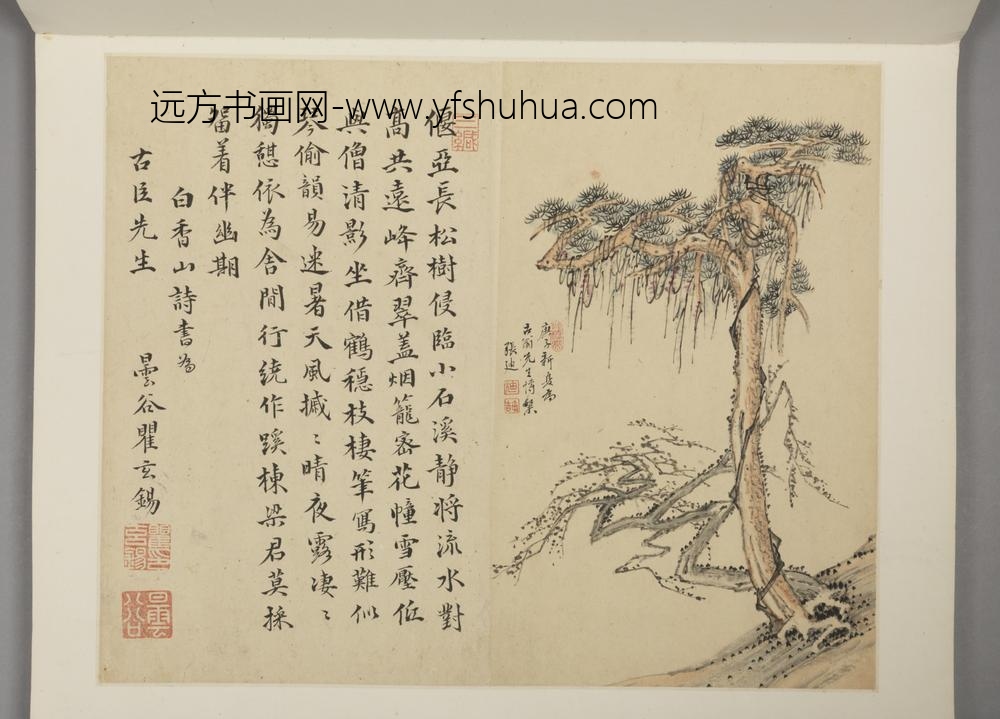 远方书画网-www.yfshuhua.com
偃亞長松樹侵臨小石溪静將流水對
髙共遠峰齊翠盖烟籠密花幢雪壓低
與僧清影坐借鶴穩枝棲筆寫形難似
琴偷韻易迷暑天風摵〻晴夜露凄〻
獨憩依為舍閒行繞作蹊棟梁君莫採
留着伴幽期
白香山詩書為
古臣先生
曇谷瞿玄錫
庚子新
古
先生
張迪